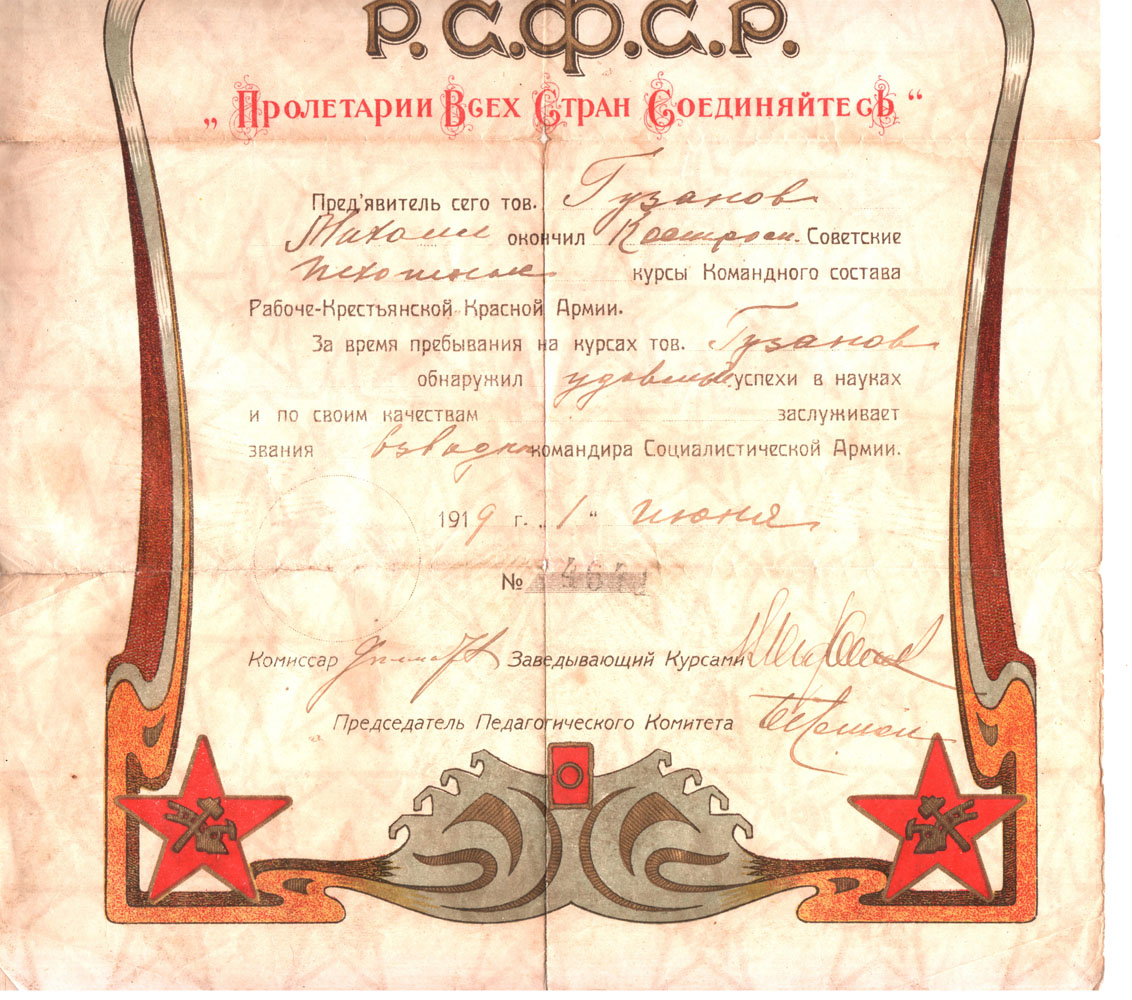 Р. С. Ф. С. Р.
„ Пролетарии Всех Стран Соединяйтесь “
Пред'явитель сего тов. Гузанов
Михаил окончил Костром. Советские
пехотные курсы Командного состава
Рабоче-Крестьянской Красной Армии.
За время пребывания на курсах тов. Гузанов
обнаружил успехи в науках
и по своим качествам заслуживает
звания взводн. командира Социалистической Армии.
1919 г. „ 1 “ июня
№
Комиссар Заведывающий Курсами
Председатель Педагогического Комитета